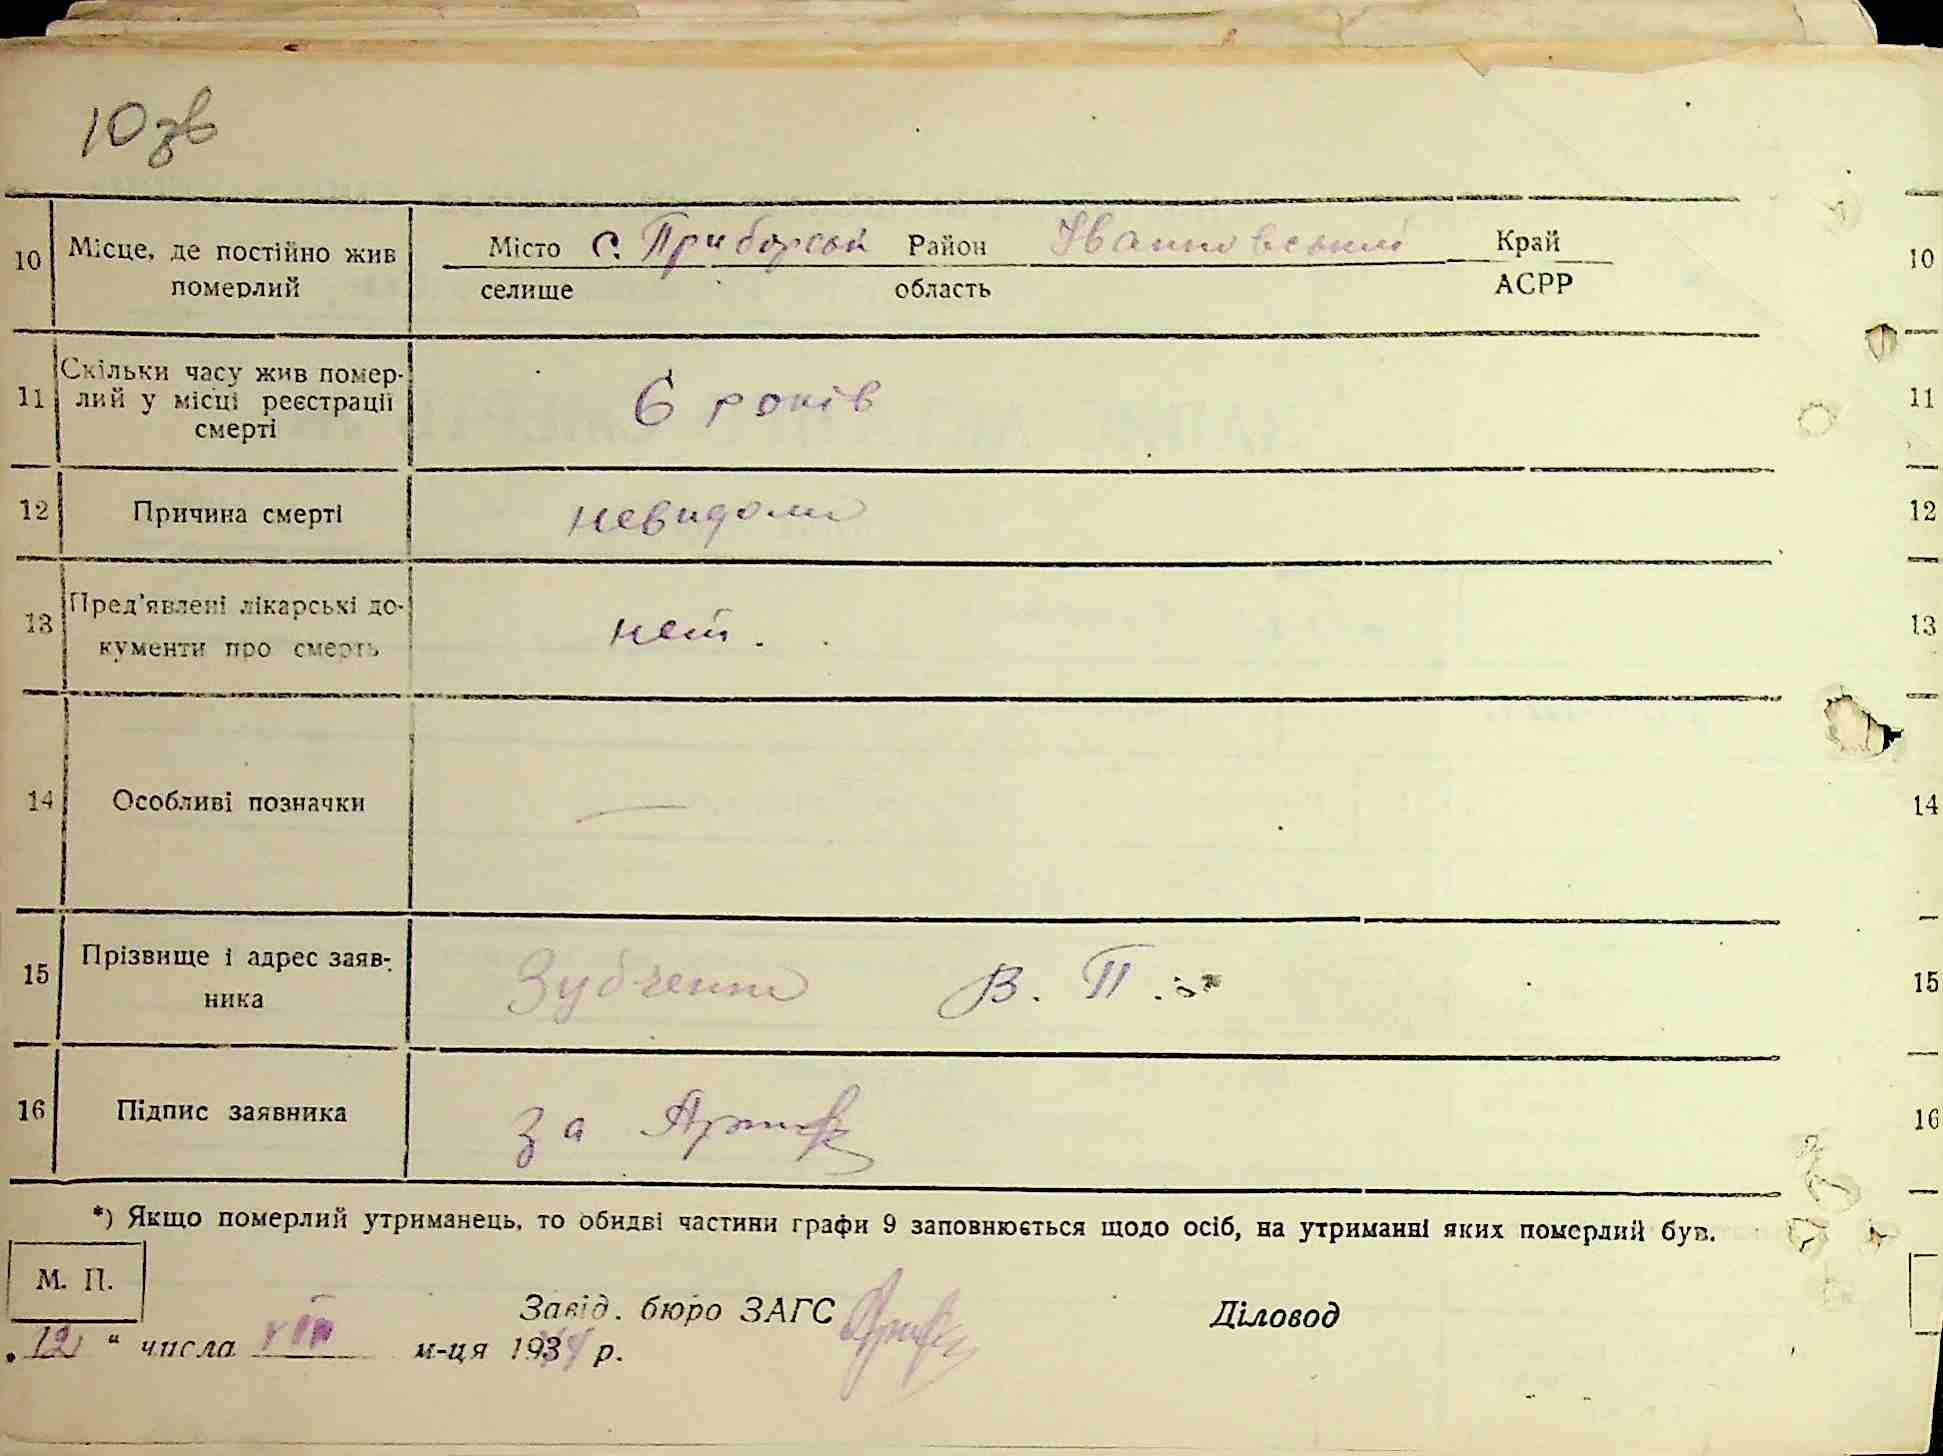 10 зв
10 Місце, де постійно жив Місто с. Приборськ Район Іванковський Край 10
померлий селище область АСРР
Скільки часу жив помер-
11 лий у місці реєстрації 6 років 11
смерті
12 Причина смерті невидомо 12
Пред'явлені лікарські до-
13 нет. 13
кументи про смерть
14 Особливі позначки — 14
Прізвище і адрес заяв-
15 Зубченко В. П. 15
ника
16 Підпис заявника за 16
*) Якщо померлий утриманець, то обидві частини графи 9 заповнюється щодо осіб, на утриманні яких померлий був.
М. П.
Завід. бюро ЗАГС Діловод
„12“ числа VIII м-ця 193 р.